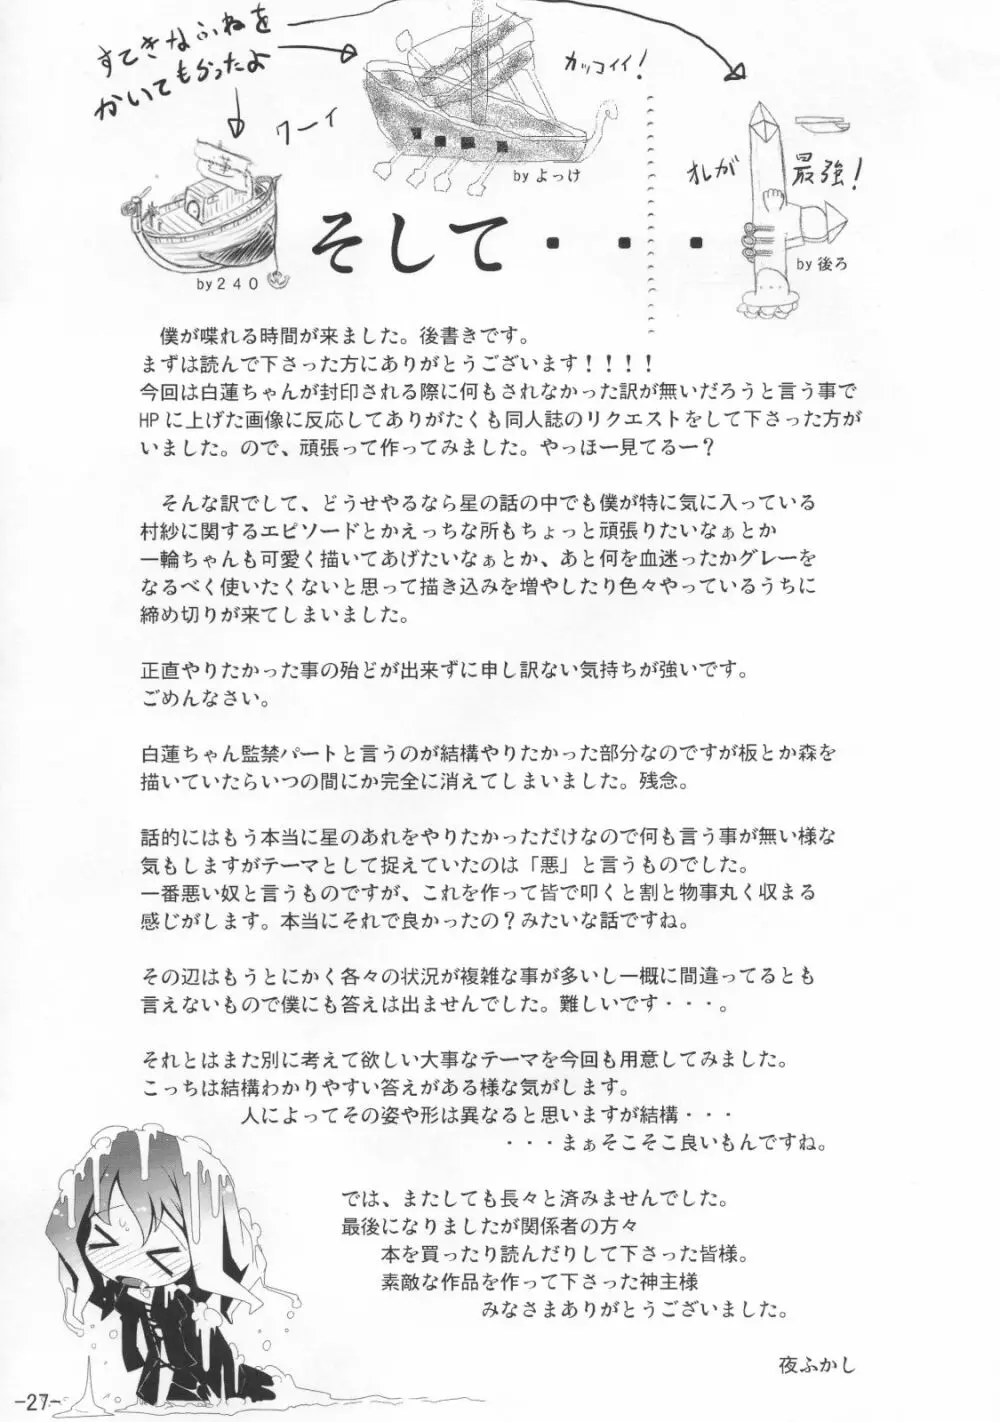 すてきなふねを
かいてもらったよ
ワーイ
カッコイイ!
by よっけ
オレが
最強!
by240
by 後ろ
そして・・・
僕が喋れる時間が来ました。後書きです。
まずは読んで下さった方にありがとうございます!!!!
今回は白蓮ちゃんが封印される際に何もされなかった訳が無いだろうと言う事で
HPに上げた画像に反応してありがたくも同人誌のリクエストをして下さった方が
いました。ので、頑張って作ってみました。やっほー見てるー?
そんな訳でして、どうせやるなら星の話の中でも僕が特に気に入っている
村紗に関するエピソードとかえっちな所もちょっと頑張りたいなぁとか
一輪ちゃんも可愛く描いてあげたいなぁとか、あと何を血迷ったかグレーを
なるべく使いたくないと思って描き込みを増やしたり色々やっているうちに
締め切りが来てしまいました。
正直やりたかった事の殆どが出来ずに申し訳ない気持ちが強いです。
ごめんなさい。
白蓮ちゃん監禁パートと言うのが結構やりたかった部分なのですが板とか森を
描いていたらいつの間にか完全に消えてしまいました。残念。
話的にはもう本当に星のあれをやりたかっただけなので何も言う事が無い様な
気もしますがテーマとして捉えていたのは「悪」と言うものでした。
一番悪い奴と言うものですが、これを作って皆で叩くと割と物事丸く収まる
感じがします。本当にそれで良かったの?みたいな話ですね。
その辺はもうとにかく各々の状況が複雑な事が多いし一概に間違ってるとも
言えないもので僕にも答えは出ませんでした。難しいです・・・。
それとはまた別に考えて欲しい大事なテーマを今回も用意してみました。
こっちは結構わかりやすい答えがある様な気がします。
人によってその姿や形は異なると思いますが結構・・・
・・・まぁそこそこ良いもんですね。
では、またしても長々と済みませんでした。
最後になりましたが関係者の方々
本を買ったり読んだりして下さった皆様。
素敵な作品を作って下さった神主様
みなさまありがとうございました。
夜ふかし
-27-